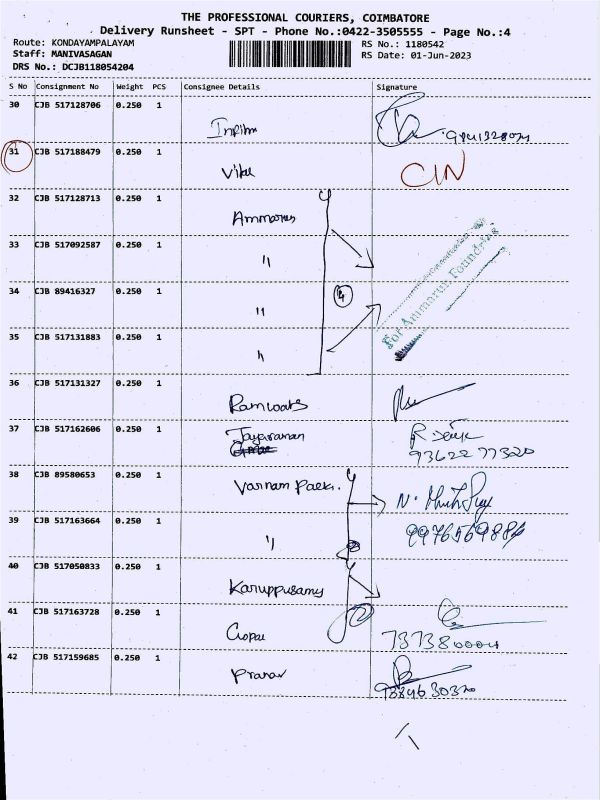 THE PROFESSIONAL COURIERS, COIMBATORE
Delivery Runsheet - SPT - Phone No.:0422-3505555 - Page No.:4
Route: KONDAYAMPALAYAM RS No.: 1180542
Staff: MANIVASAGAN RS Date: 01-Jun-2023
DRS No.: DCJB118054204
S No Consignment No Weight PCS Consignee Details Signature
30 CJB 517128706 0.250 1
31 CJB 517188479 0.250 1
32 CJB 517128713 0.250 1
33 CJB 517092587 0.250 1 "
34 CJB 89416327 0.250 1 "
For Ammarun Foundries
35 CJB 517131883 0.250 1 "
36 CJB 517131327 0.250 1
37 CJB 517162606 0.250 1 Jayaraman
93622 77320
38 CJB 89580653 0.250 1 Varnam Pack.
39 CJB 517163664 0.250 1 "
40 CJB 517050833 0.250 1 Karuppusamy
41 CJB 517163728 0.250 1 Gopal
42 CJB 517159685 0.250 1 Pranav